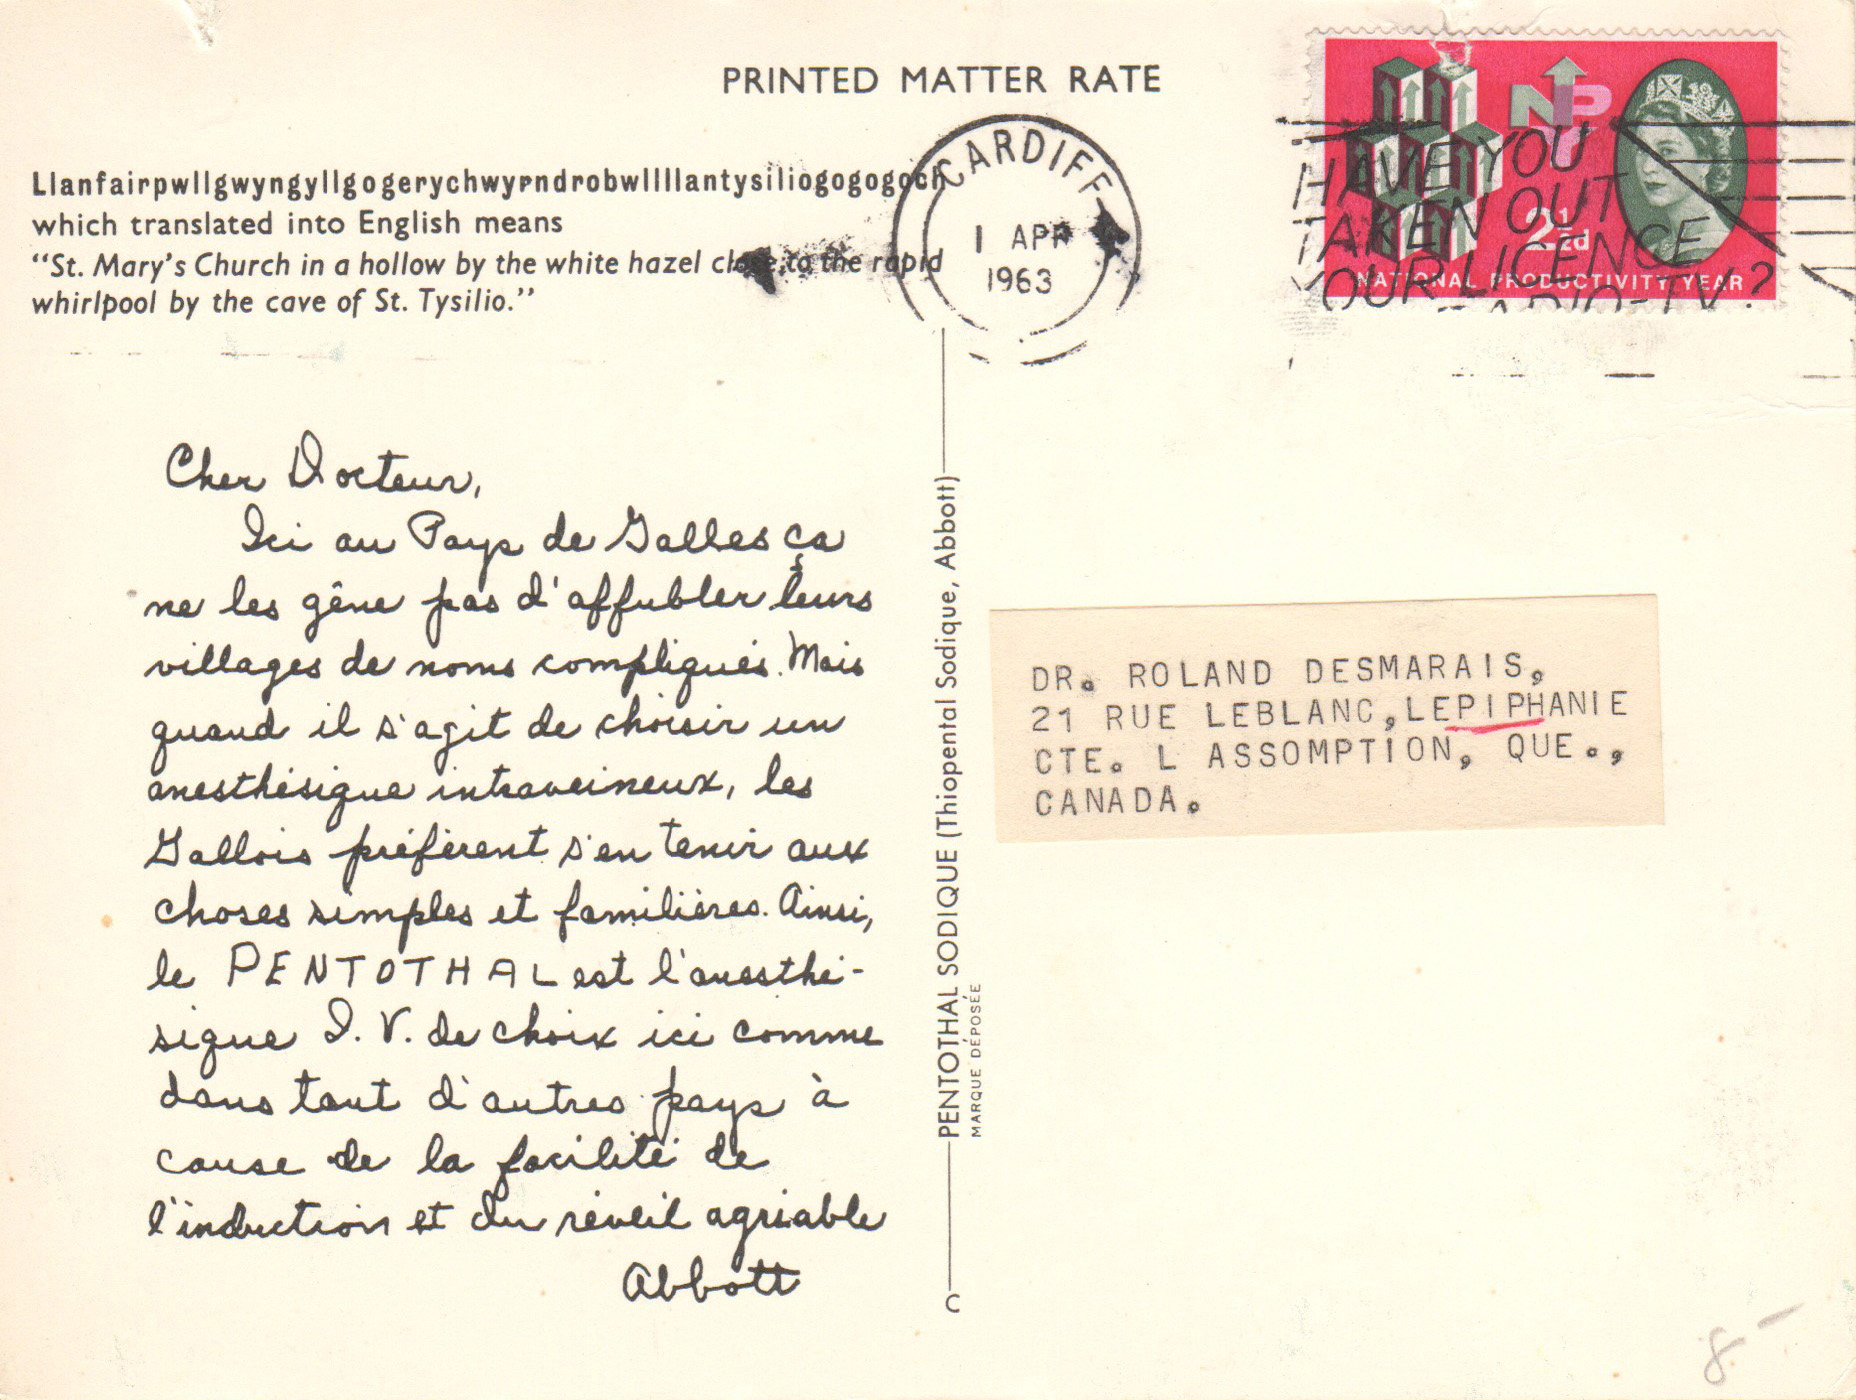 PRINTED MATTER RATE
Llanfairpwllgwyngyllgogerychwyrndrobwllllantysiliogogogoch
which translated into English means
“St. Mary’s Church in a hollow by the white hazel close to the rapid
whirlpool by the cave of St. Tysilio.”
CARDIFF
1 APR
1963
NPY
2½d
NATIONAL PRODUCTIVITY YEAR
HAVE YOU
TAKEN OUT
YOUR LICENCE
RADIO-TV?
Cher Docteur,
Ici au Pays de Galles ça
ne les gêne pas d'affubler leurs
villages de noms compliqués. Mais
quand il s'agit de choisir un
anesthésique intraveineux, les
Gallois préfèrent s'en tenir aux
choses simples et familières. Ainsi,
le PENTOTHAL est l'anesthé-
sique I.V. de choix ici comme
dans tant d'autres pays à
cause de la facilité de
l'induction et du réveil agréable
Abbott
PENTOTHAL SODIQUE (Thiopental Sodique, Abbott)
MARQUE DÉPOSÉE
C
DR. ROLAND DESMARAIS,
21 RUE LEBLANC,LEPIPHANIE
CTE. L ASSOMPTION, QUE.,
CANADA.
8-